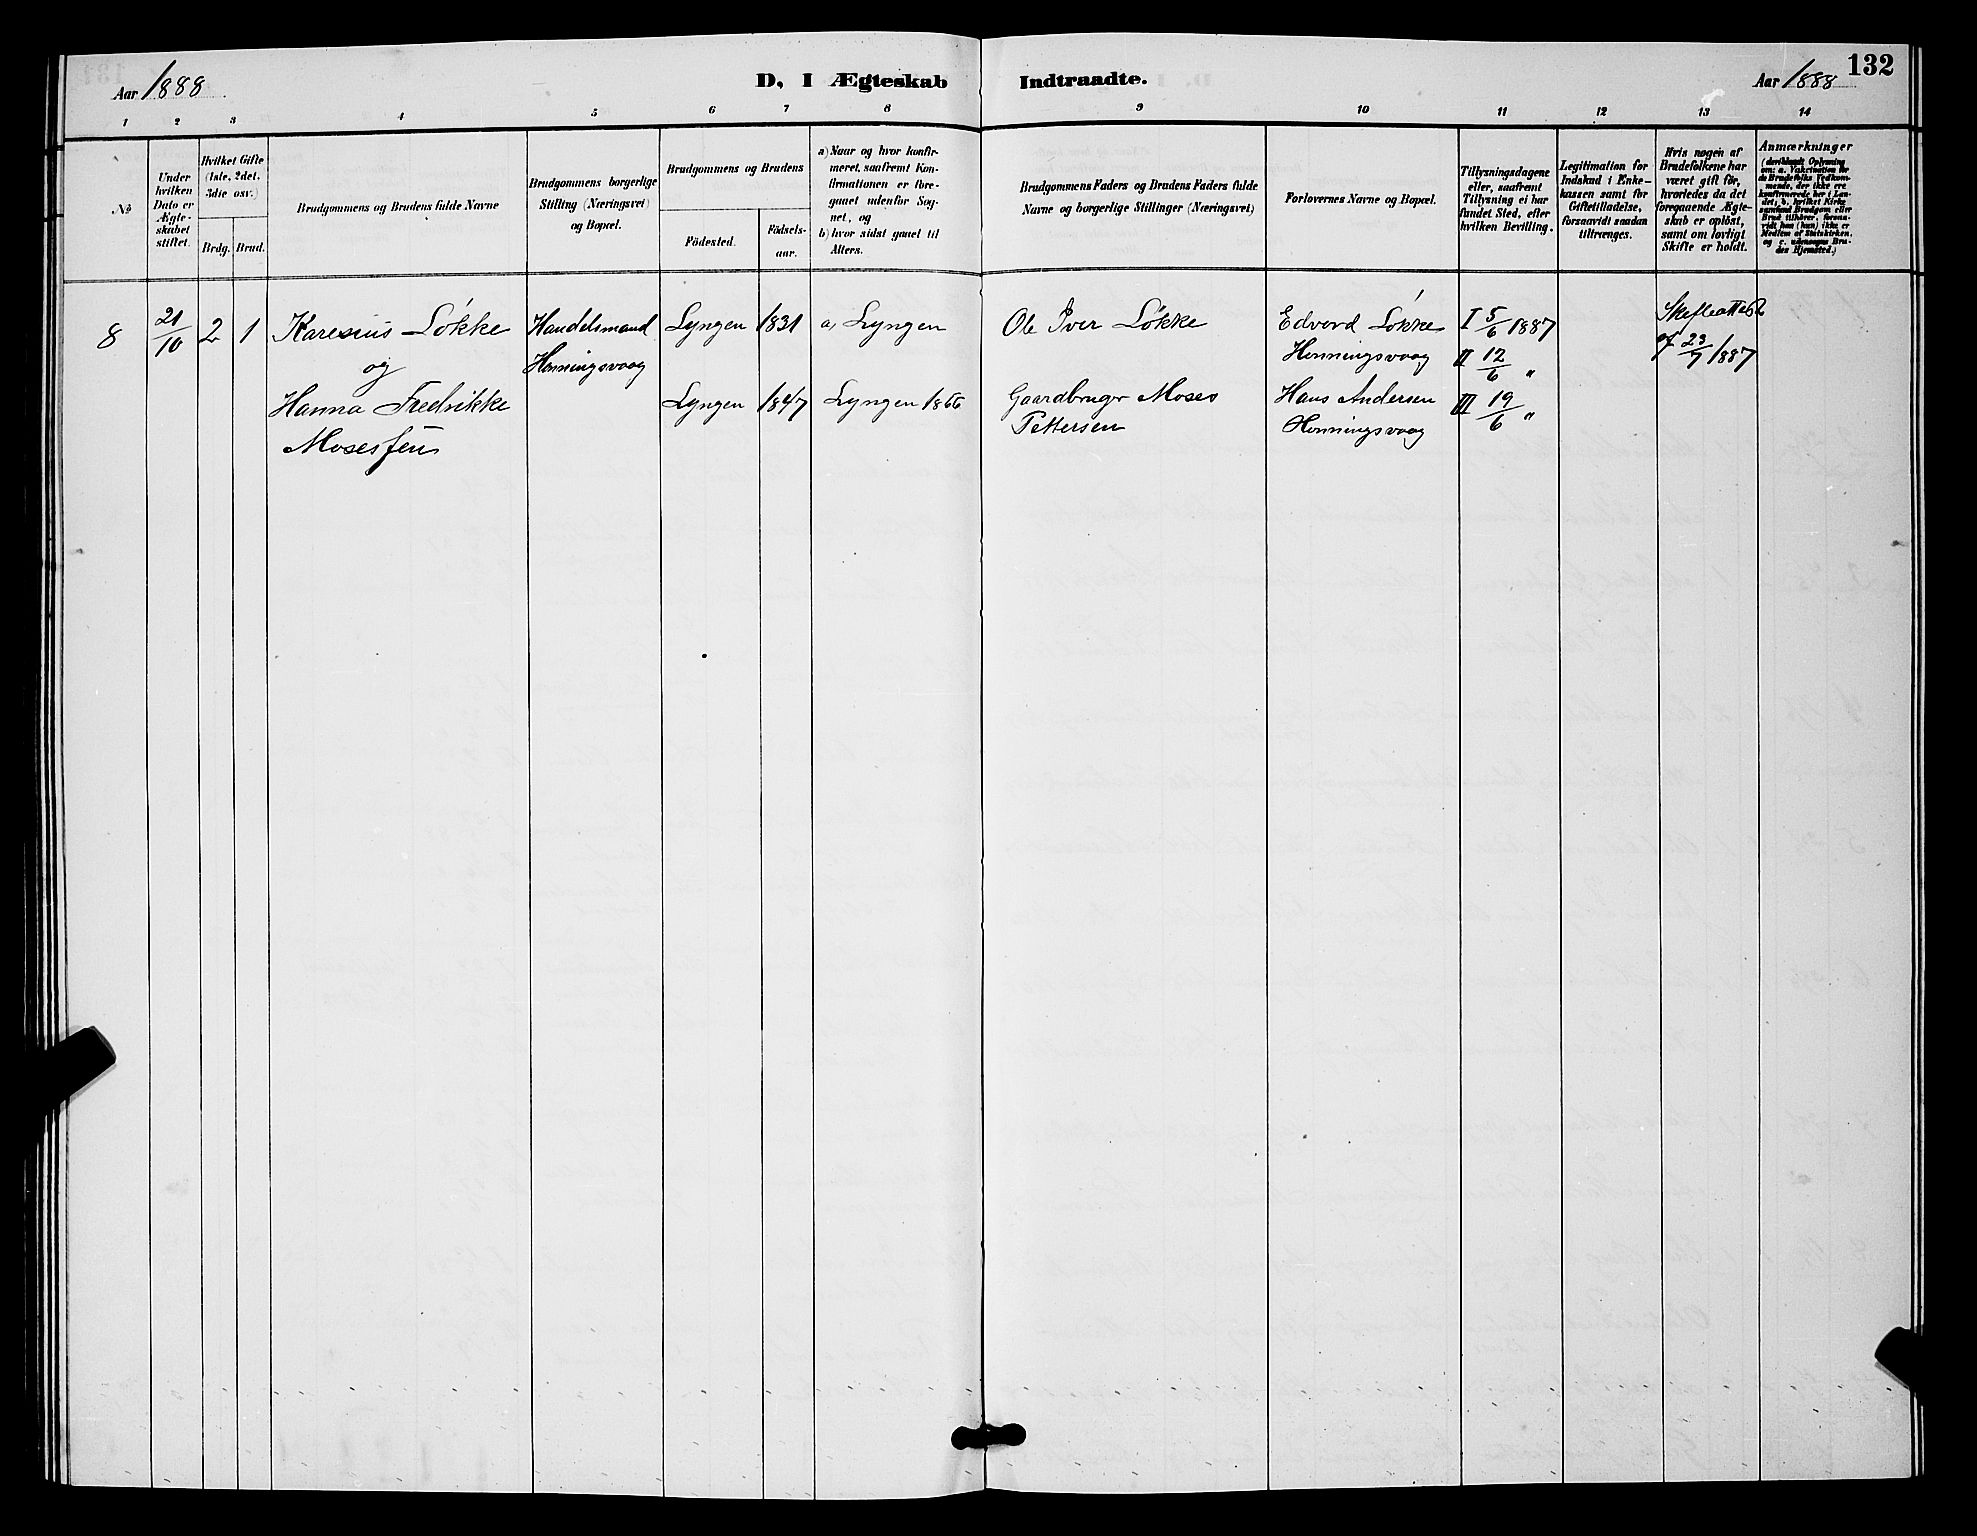 132
Aar 1888
D, I Ægteskab Indtraadte.
Aar 1888
1 2 3 4 5 6 7 8 9 10 11 12 13 14
№
Under
hvilken
Dato er
Ægte-
skabet
stiftet.
Hvilket Gifte
(1ste, 2det,
3die osv.)
Brdg. Brud.
Brudgommens og Brudens fulde Navne
Brudgommens borgerlige
Stilling (Næringsvei)
og Bopæl.
Brudgommens og Brudens
Födested.
Födsels-
aar.
a) Naar og hvor konfir-
meret, saafremt Kon-
firmationen er fore-
gaaet udenfor Sog-
net, og
b) hvor sidst gaaet til
Alters.
Brudgommens Faders og Brudens Faders fulde
Navne og borgerlige Stillinger (Næringsvei)
Forlovernes Navne og Bopæl.
Tillysningsdagene
eller, saafremt
Tillysning ei har
fundet Sted, efter
hvilken Bevilling.
Legitimation for
Indskud i Enke-
kassen samt för
Giftetilladelse,
forsaavidt saadan
tiltrænges.
Hvis nogen af
Brudefolkene har
været gift för,
hvorledes da det
foregaaende Ægte-
skab er oplöst,
samt om lovligt
Skifte er holdt.
Anmærkninger
(deriblandt Oplysning
om: a. Vakcination for
de Brudefolks Vedkom-
mende, der ikke ere
konfirmerede her i Lan-
det; b. hvilket Kirke-
samfund Brudgom eller
Brud tilhörer, forsaa-
vidt han (hun) ikke er
Medlem af Statskirken,
og c. udensogns Bru-
des Hjemsted.)
8 21/10 2 1 Karesius Løkke Handelsmand Lyngen 1831 a, Lyngen Ole Iver Løkke Edvard Løkke I 5/6 1887 Skifteattest
og Honningsvaag Honningsvaag II 12/6 " af 23/7 1887
Hanna Fredrikke Lyngen 1847 Lyngen 1866 Gaardbruger Moses Hans Andersen III 19/6 "
Mosesjen Pettersen Honningsvaag